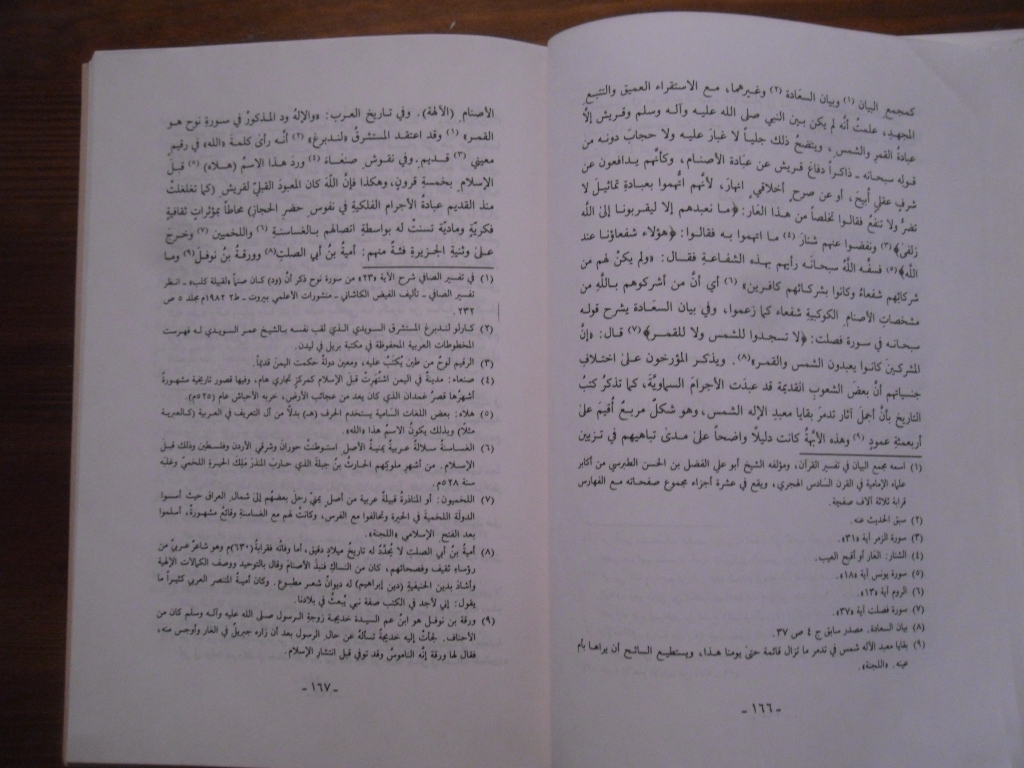 كمجمع البيان (١) وبيان السعادة (٢) وغيرهما، مع الاستقراء العميق والتتبع
المجهد، علمتُ أنَّه لم يكن بين النبي صلى الله عليه وآله وسلم وقريش إلَّا
عبادةُ القمرِ والشمسِ، ويتضحُ ذلك جلياً لا غبارَ عليه ولا حجابَ دونه من
قوله سبحانه ـ ذاكراً دفاعَ قريش عن عبادة الأصنام، وكأنَّهم يدافعون عن
شرفِ عقلٍ أُبيحَ، أو عن صرحٍ أخلاقيٍ انهارَ، لأنَّهم اتُّهموا بعبادةِ تماثيلَ لا
تضرُّ ولا تنفعُ فقالوا تخلصاً من هذا العار: ﴿ما نعبدهم إلا ليقربونا إلى الله
زلفى﴾(٣) ونفضوا عنهم شنارَ (٤) ما اتهموا به فقالوا: ﴿هؤلاء شفعاؤنا عند
الله﴾(٥) فسفَّه اللهُ سبحانَه رأيَهم بهذه الشفاعةِ فقال: «ولم يكنْ لهم من
شركائِهم شفعاءُ وكانوا بشركائِهم كافرين» (٦) أي أنَّ من أشركوهم باللهِ من
مشخصاتِ الأصنامِ الكوكبيةِ شفعاء كما زعموا، وفي بيان السعَادة يشرح قولَه
سبحانه في سورة فصلت: ﴿لا تسجدوا للشمس ولا للقمر﴾(٧) قال: «إنَّ
المشركينَ كانوا يعبدون الشمسَ والقمرَ»(٨). ويذكر المؤرخون على اختلافِ
جنسياتِهم أنَّ بعضَ الشعوبِ القديمة قد عبدَت الأجرامَ السماويَّةَ، كما تذكرُ كتبُ
التاريخ بأنَّ أجلَ آثار تدمرَ بقايا معبدِ الإله الشمس، وهو شكلٌ مربعٌ أُقيمَ على
أربعمئةِ عمودٍ (٩) وهذه الأبَّهةُ كانت دليلًا واضحاً على مدىٰ تباهيهم في تزيين
(١) اسمه مجمع البيان في تفسير القرآن، ومؤلفه الشيخ أبو علي الفضل بن الحسن الطبرسي من أكابر
علماء الإمامية في القرن السادس الهجري، ويقع في عشرة أجزاء مجموع صفحاته مع الفهارس
قرابة ثلاثة آلاف صفحة.
(٢) سبق الحديث عنه.
(٣) سورة الزمر آية «٣».
(٤) الشنار: العار أو أقبح العيب.
(٥) سورة يونس آية «١٨».
(٦) الروم آية «١٣».
(٧) سورة فصلت آية «٣٧».
(٨) بيان السعادة. مصدر سابق ج ٤ ص ٣٧.
(٩) بقايا معبد الآله شمس في تدمر ما تزال قائمة حتى يومنا هذا، ويستطيع السائح أن يراها بأم
عينه. «اللجنة».
ـ ١٦٦ ـ
الأصنام (الآلهة). وفي تاريخ العرب: «والإلهُ ود المذكورُ في سورةِ نوح هو
القمر» (١) وقد اعتقد المستشرقُ «لندبرغ» (٢) أنَّه رأى كلمةَ «الله» في رقيمٍ
معيني (٣) قديم. وفي نقوش صنعَاءَ (٤) وردَ هذا الاسمُ (هلاه) (٥) قبلَ
الإسلامِ بخمسةِ قرونٍ، وهكذا فإنَّ اللهَ كان المعبودَ القبليَّ لقريش (كما تغلغلتْ
منذ القديم عبادةُ الأجرام الفلكيةِ في نفوس حضرِ الحجازِ) محاطاً بمؤثراتٍ ثقافيةٍ
فكريَّةٍ وماديةٍ تسنتْ له بواسطةِ اتصالهم بالغساسنةِ (٦) واللخميين (٧) وخرجَ
على وثنيةِ الجزيرةِ فئةٌ منهم: أميةُ بنُ أبي الصلتِ(٨) وورقةُ بنُ نوفلَ(٩) وما
(١) في تفسير الصافي شرح الآية «٢٣» من سورة نوح ذكر أنَّ (ود) كان صنماً «لقبيلة كلب». انظر
تفسير الصافي ـ تأليف الفيض الكاشاني ـ منشورات الأعلمي بيروت ـ ط٢ ١٩٨٢م مجلد ٥ ص
٢٣٢.
(٢) كارلو لندبرغ المستشرق السويدي الذي لقب نفسه بالشيخ عمر السويدي له فهرست
المخطوطات العربية المحفوظة في مكتبة بريل في ليدن.
(٣) الرقيم لوحٌ من طينٍ يُكتَبُ عليه، ومعين دولةٌ حكمت اليمنَ قديماً.
(٤) صنعاء: مدينةٌ في اليمن اشتهرتْ قبل الإسلام كمركزٍ تجاري هام، وفيها قصور تاريخية مشهورةٌ
أشهرُها قصرُ غمدان الذي كان يعد من عجائب الأرض، خربه الأحباش عام (٥٢٥م).
(٥) هلاه: بعض اللغات السَّامية يستخدم الحرف (هـ) بدلًا من آل التعريف في العربية (كـالعبرية
مثلًا) وبذلك يكونُ الاسمُ هذا «الله».
(٦) الغساسنة سلالةٌ عربيةٌ يمنيةُ الأصلِ استوطنتْ حورانَ وشرقي الأردن وفلسطين وذلك قبل
الإسلام. من أشهرِ ملوكِهم الحارثُ بنُ جبلة الذي حاربَ المنذرَ مَلِكَ الحيرةِ اللخميَّ وغلبَه
سنة ٥٢٨م.
(٧) اللخميون: أو المناذرةُ قبيلةٌ عربية من أصلٍ يمنيٍ رحلَ بعضُهم إلى شمال العراق حيث أسسوا
الدولَة اللخميةَ في الحيرة وتحالفوا مع الفرس، وكانتْ لهم مع الغساسنةِ وقائعُ مشهورةٌ، أسلموا
بعد الفتح الإسلامي «اللجنة».
(٨) أميةُ بنُ أبي الصلتِ لا يُحدَّدُ له تاريخُ ميلادٍ دقيق، أما وفاتُه فقرابةَ (٦٣٠م) وهو شاعرٌ عربيٌ من
رؤساءِ ثقيف وفصحائهم، كان من النساكِ فنبذَ الأصنامَ وقال بالتوحيد ووصف الكمالات الإلهية
وأشادَ بدينِ الحنيفية (دين إبراهيم) له ديوانُ شعرٍ مطبوع. وكان أميةُ المنتصر العربي كثيراً ما
يقول: إني لأجد في الكتب صفة نبي يُبعثُ في بلادنا.
(٩) ورقة بن نوفل هو ابنُ عم السيدة خديجة زوجة الرسول صلى الله عليه وآله وسلم كان من
الأحناف. لجأتْ إليه خديجةُ تسألُه عن حال الرسول بعد أن زاره جبريلُ في الغار وأوجس منه،
فقال لها ورقة إنَّه الناموسُ وقد توفي قبل انتشارِ الإسلامِ.
ـ ١٦٧ ـ